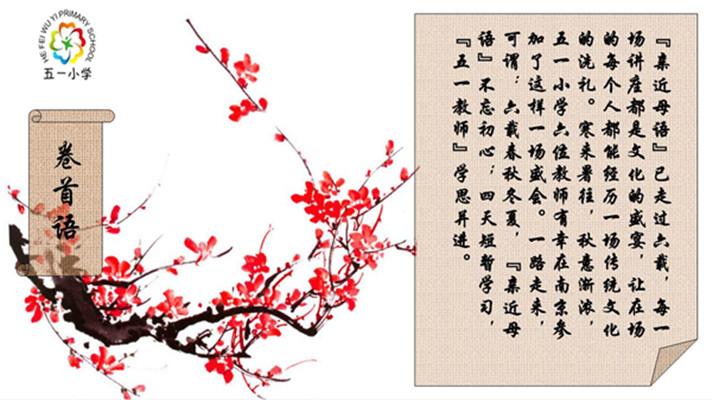 HE FEI WU YI PRIMARY SCHOOL
五一小学
卷首语
『亲近母语』已走过六载，每一
场讲座都是文化的盛宴，让在场
的每个人都能经历一场传统文化
的洗礼。寒来暑往，秋意渐浓，
五一小学六位教师有幸在南京参
加了这样一场盛会。一路走来，
可谓：六载春秋冬夏，『亲近母
语』不忘初心；四天短暂学习，
『五一教师』学思并进。